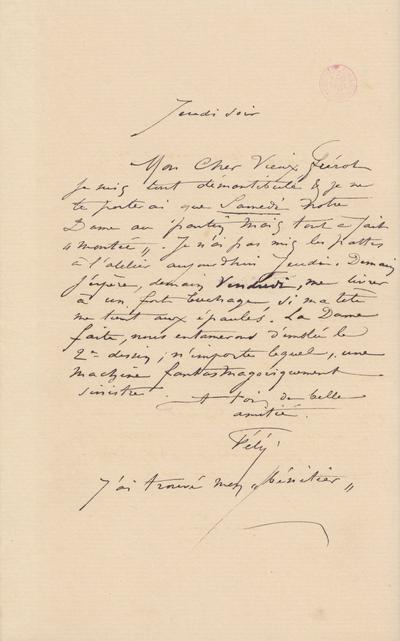 Jeudi soir
Mon Cher Vieux
Je suis tout démantibulé & je ne
te porterai que Samedi Notre
Dame au mais tout a fait
"montée". Je n'ai pas mis les pattes
à l'atelier aujourd'hui Jeudi. Demain
j'espère, demain Vendredi, me livrer
à un fort bûchage si ma tête
me tient aux épaules. La Dame
faite, nous entamerons d'emblée le
2me dessin, n'importe lequel, une
machine fantasmagoriquement
sinistre. A toi de belle
amitié.
Fély.
J'ai trouvé mes "bénitier"